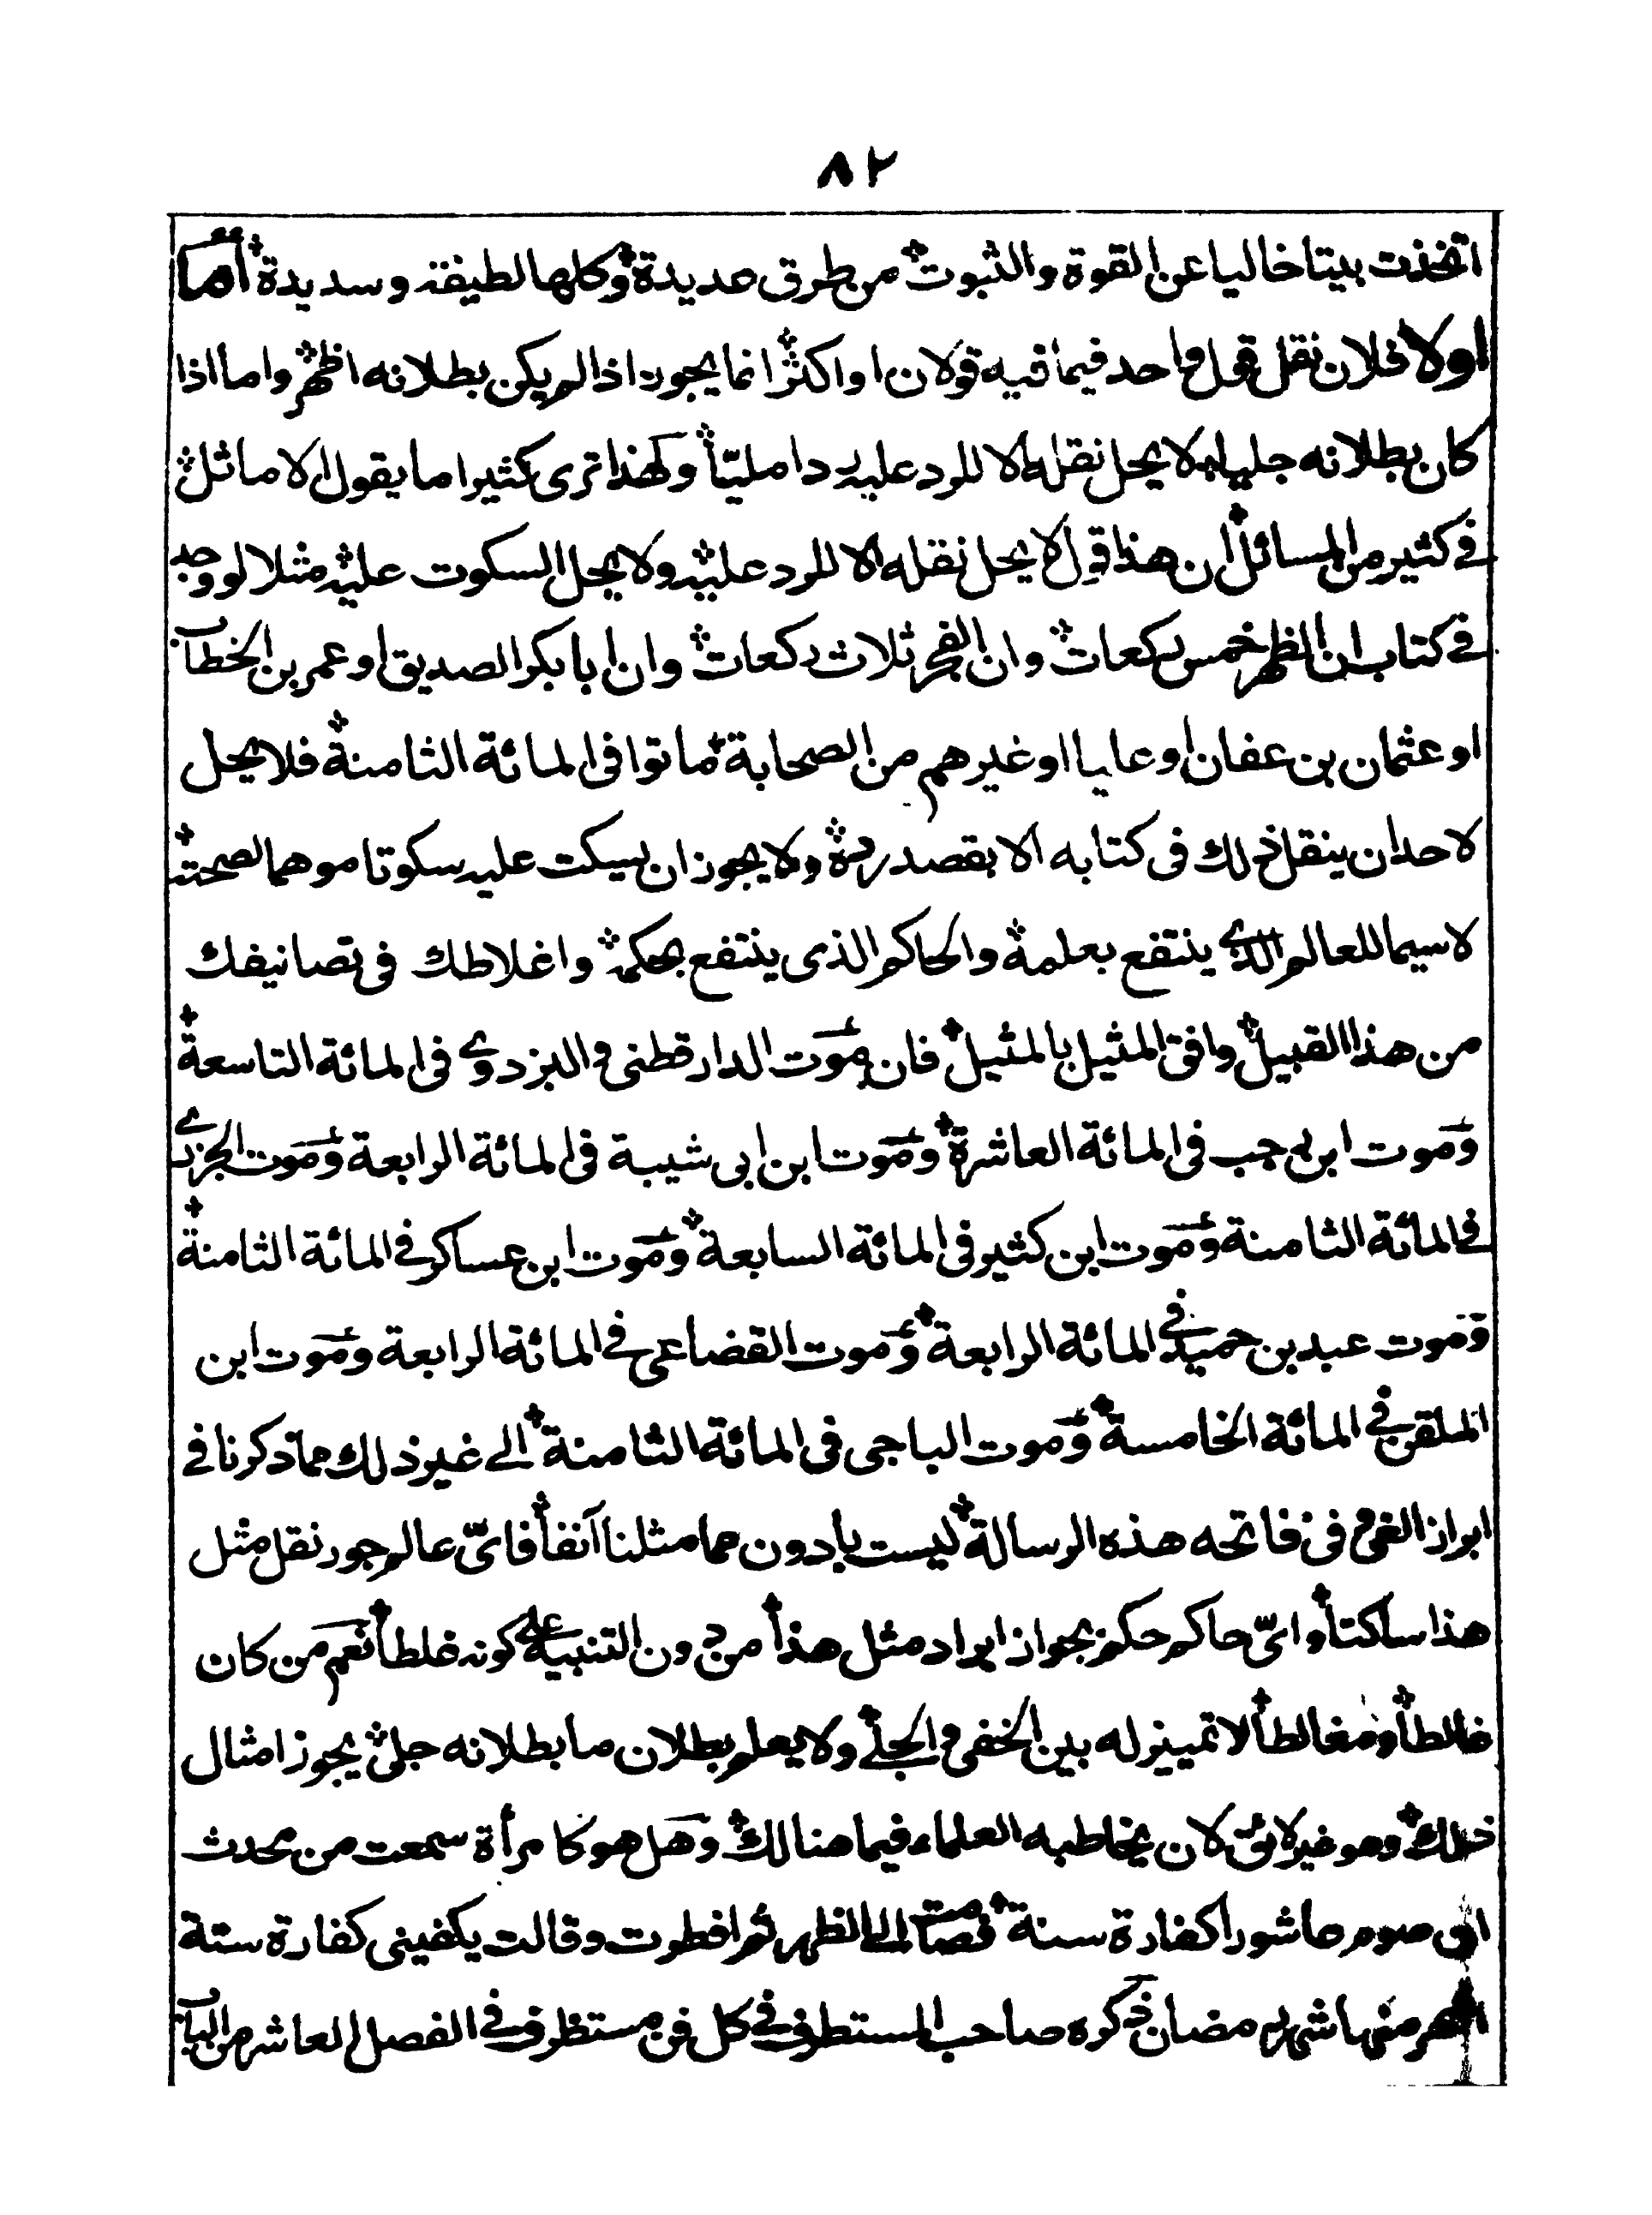 ٨٢
اتخذت بيتا خاليا عن القوة والثبوت من طرق عديدة وكلها لطيفة وسديدة أما
اولا فلان نقل قول واحد فيما فيه قولان او اكثر انما يجوز اذا لم يكن بطلانه اظهر واما اذا
كان بطلانه جليا فلا يحل نقله الا للرد عليه ردا مليّا ولهذا ترى كثيرا ما يقول الاماثل
في كثير من المسائل ان هذا قول لا يحل نقله الا للرد عليه ولا يحل السكوت عليه مثلا لو وجد
في كتاب ان الظهر خمس ركعات وان الفجر ثلاث ركعات وان ابا بكر الصديق او عمر بن الخطاب
او عثمان بن عفان او عليا او غيرهم من الصحابة ماتوا فى المائة الثامنة فلا يحل
لاحد ان ينقل ذلك فى كتابه الا بقصد رده ولا يجوز ان يسكت عليه سكوتا موهما لصحته
لا سيما للعالم الذي ينتفع بعلمه والحاكم الذى ينتفع بحكمه واغلاطك فى تصانيفك
من هذا القبيل وافق المثيل بالمثيل فان موت الدارقطنى والبزدوي فى المائة التاسعة
وموت ابن رجب فى المائة العاشرة وموت ابن ابى شيبة فى المائة الرابعة وموت الجزري
في المائة الثامنة وموت ابن كثير فى المائة السابعة وموت ابن عساكر في المائة الثامنة
وموت عبد بن حميد في المائة الرابعة وموت القضاعى في المائة الرابعة وموت ابن
الملقن في المائة الخامسة وموت الباجى فى المائة الثامنة الى غير ذلك مما ذكرنا في
ابراز الغى وفى فاتحه هذه الرسالة ليست بادون مما مثلنا آنفا فاىّ عالم جوز نقل مثل
هذا ساكتا واىّ حاكم حكم بجواز ايراد مثل هذا من دون التنبيه على كونه غلطا نعم من كان
غالطا ومغالطا لا تمييز له بين الخفى والجلي ولا يعلم بطلان ما بطلانه جلى يجوز امثال
ذلك وهو غير لائق لان يخاطبه العلماء فيما هنالك وهل هو كامرأة سمعت من محدث
ان صوم عاشورا كفارة سنة فصامت الى الظهر ثم افطرت وقالت يكفينى كفارة ستة
اشهر منها شهر رمضان ذكره صاحب المستطرف في كل فن مستظرف في الفصل العاشر من الباب